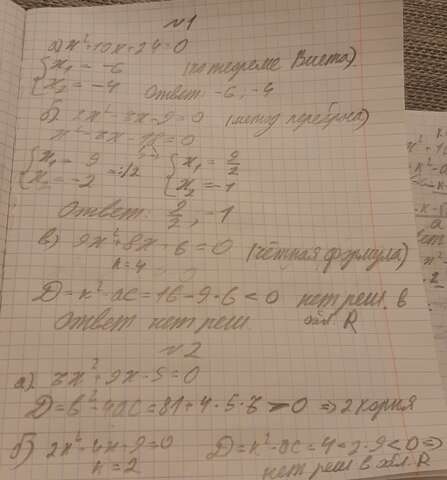 №1
а) x²+10x+24=0
{x₁ = -6 (по теореме Виета)
{x₂ = -4 Ответ: -6, -4
б) 2x²-7x-9=0 (метод переброса)
x²-7x-18=0
{x₁ = 9 {x₁ = 9/2
{x₂ = -2 =:2 {x₂ = -1
Ответ: 9/2, -1
в) 9x²+8x+6=0 (чётная формула)
k=4
D=k²-ac=16-9·6<0 нет реш. в
Ответ нет реш обл. R
№2
а) 7x²+9x-5=0
D=b²-4ac=81+4·5·7>0 => 2 корня
б) 2x²-4x+9=0 D=k²-ac=4-2·9<0 =>
k=2 нет реш в обл. R